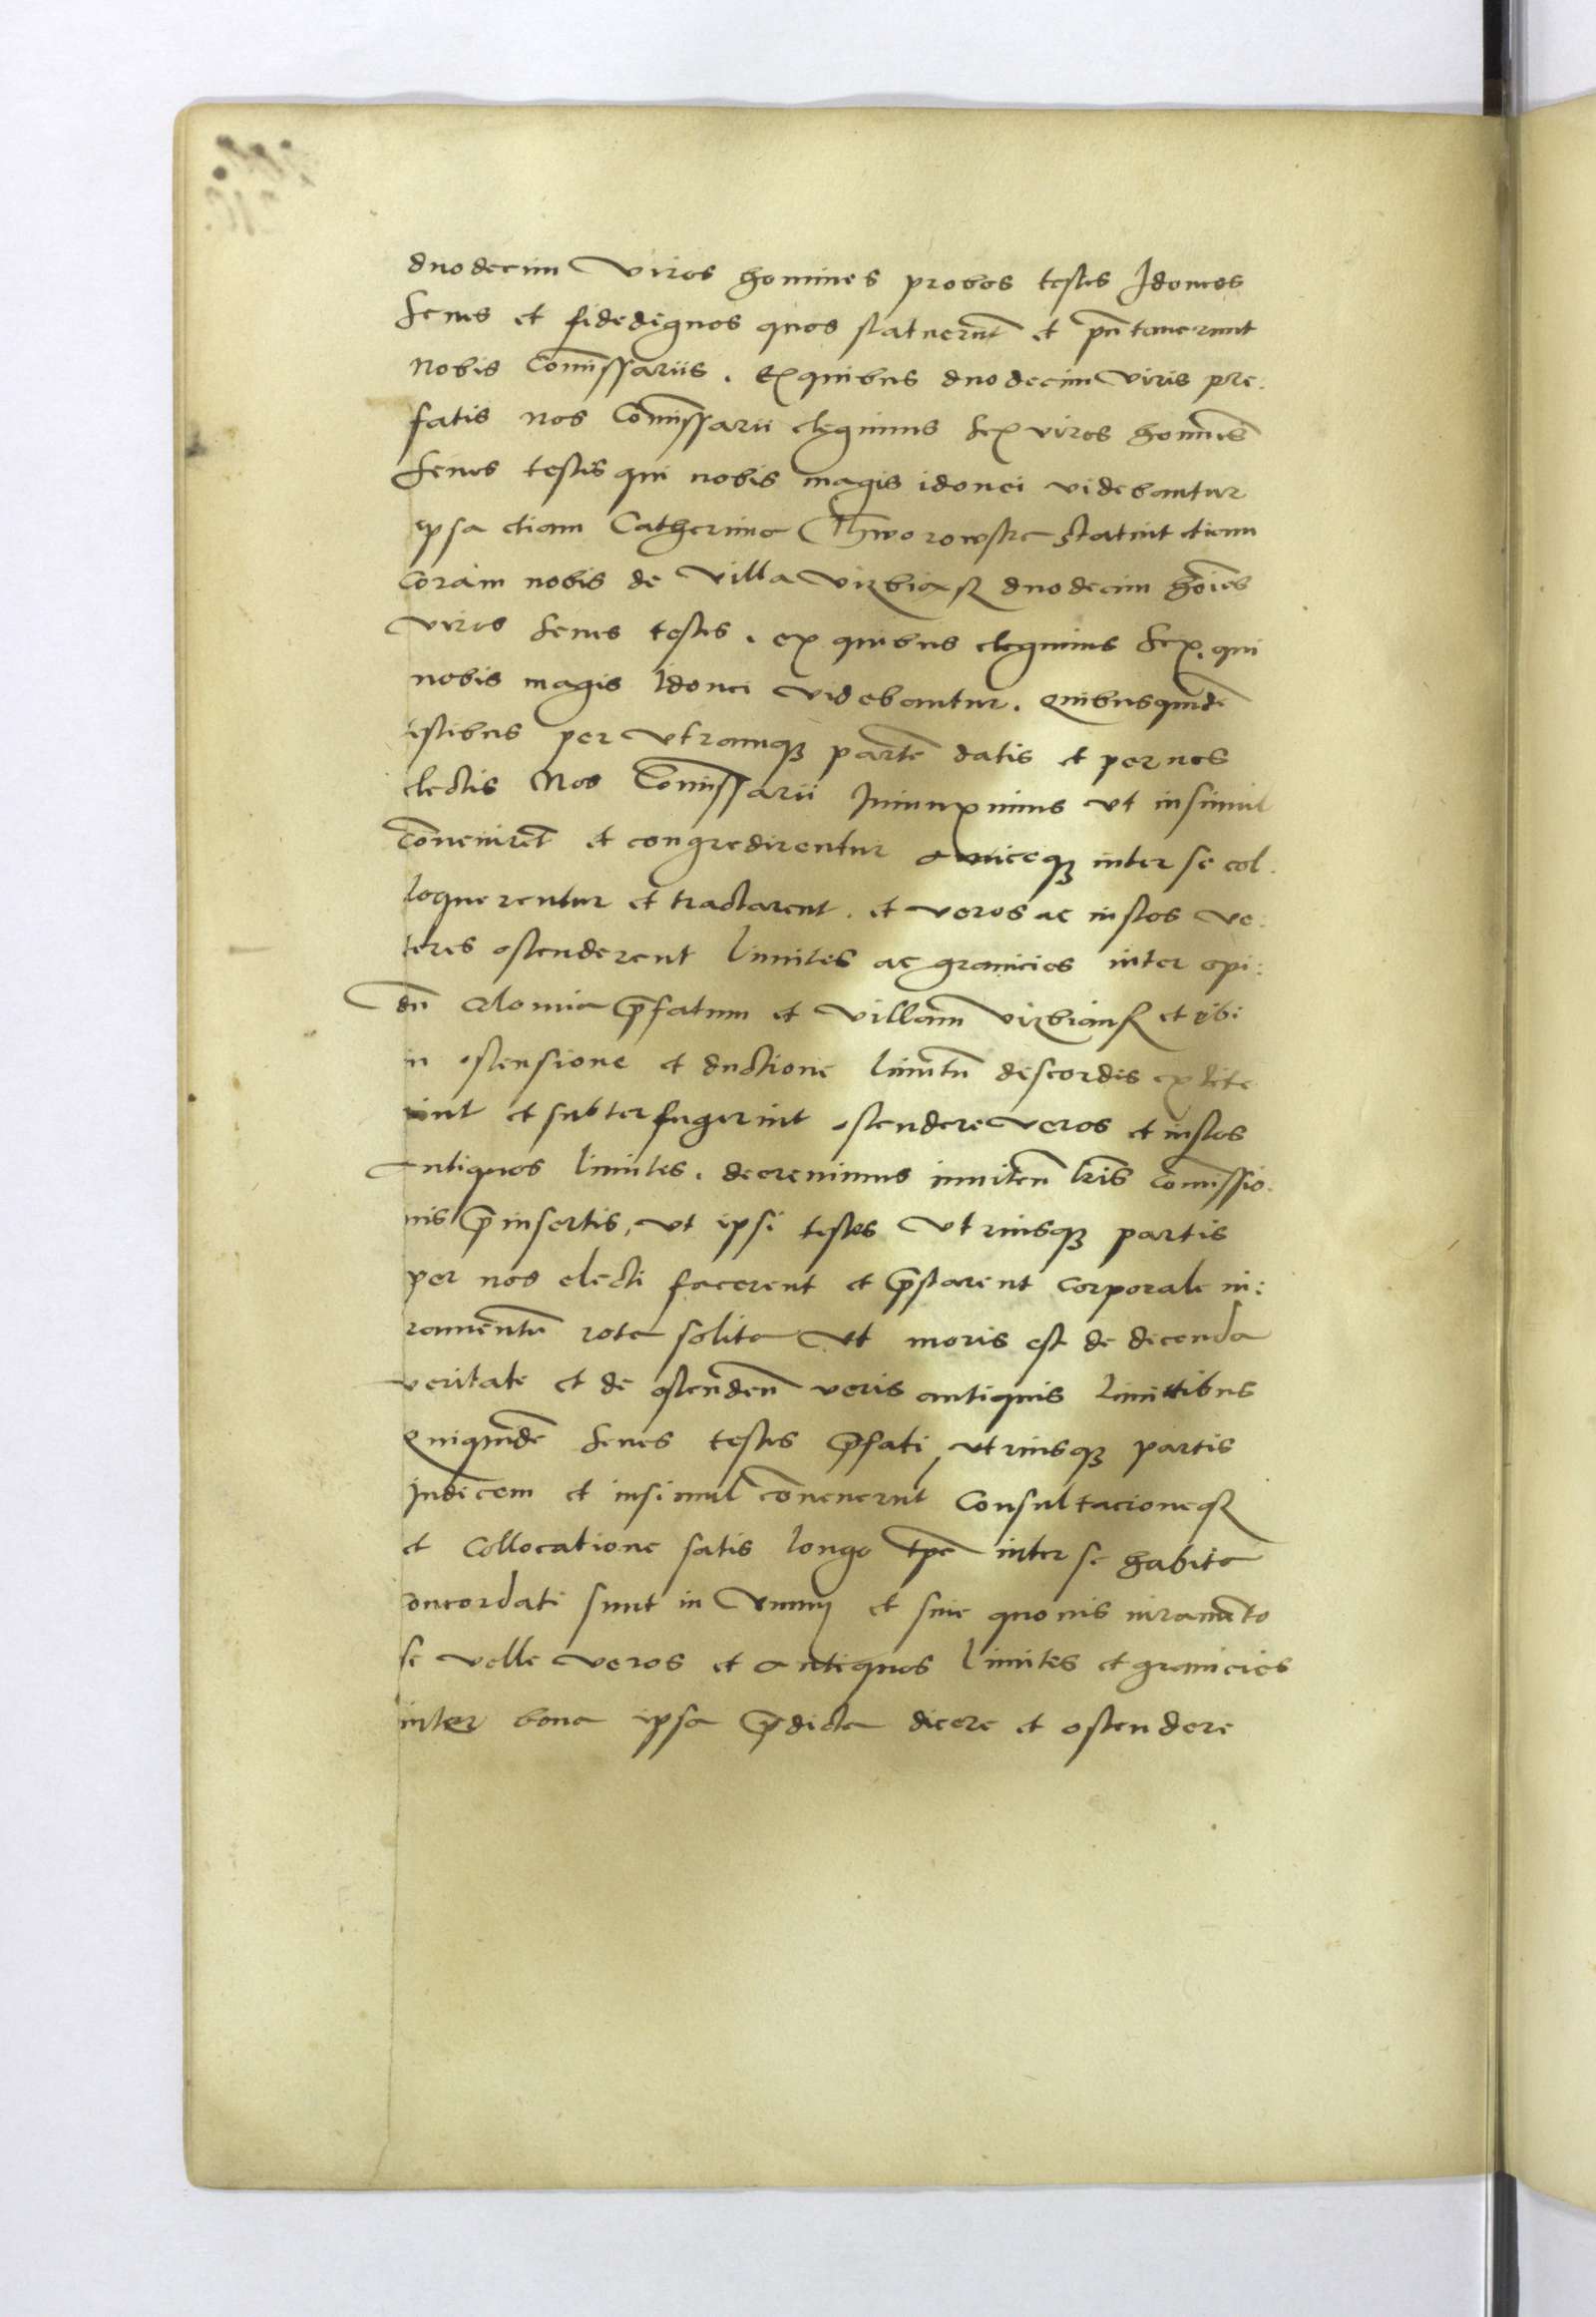 duodecim viros homines probos testes Idoneos
Senes et fidedignos quos statuerūt et pn̄taverunt
Nobis Com̄issariis. Ex quibus duodecim viris pre:
fatis nos Com̄issarii elegimus sex viros homines
senes testes qui nobis magis idonei videbantur
ipsa etiam Catherina Thworowska statuit etiam
coram nobis de villa virbiasz duodecim hoīes
viros senes testes. ex quibus elegimus sex. qui
nobis magis Idonei videbantur. Quibusquidē
testibus per utramqȝ partē datis et per nos
electis Nos Com̄issarii Iniunximus ut insimul
convenirēt et congredirentur amiceqȝ inter se col:
loquerentur et tractarent. et veros ac iustos ve:
teres ostenderent limites ac granicies inter opi:
dū Colomia p̄fatum et villam virbiansz et ibi
in ostensione et ductione limitū discordes extite
rint et subterfugerint ostendere veros et iustos
antiquos limites. decrevimus inniten̄ lris Com̄issio:
nis p̄insertis, ut ipsi testes utriusqȝ partis
per nos electi facerent et p̄starent corporale iu:
ramentū rota solita ut moris est de dicenda
veritate et de ostenden̄ veris antiquis limitibus
Quiquidē senes testes p̄fati utriusqȝ partis
Inbicem et insimul convenerūt Consultacioneqȝ
et collocatione satis longo tp̄e inter se habita
concordati sunt in unum et sine quovis iuramēto
se velle veros et antiquos limites et granicies
inter bona ipsa p̄dicta dicere et ostendere